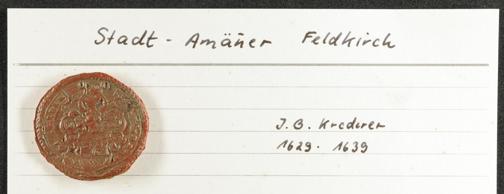 Stadt - Amäner Feldkirch
J. B. Krederer
1629 - 1639